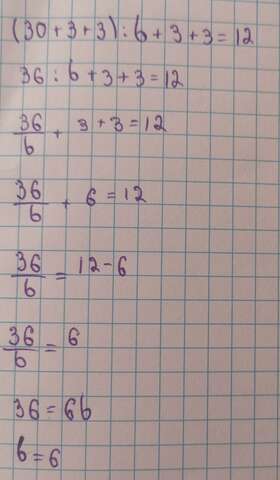 (30+3+3):b+3+3=12
36:b+3+3=12
36/b + 3+3=12
36/b + 6=12
36/b = 12-6
36/b = 6
36=6b
b=6